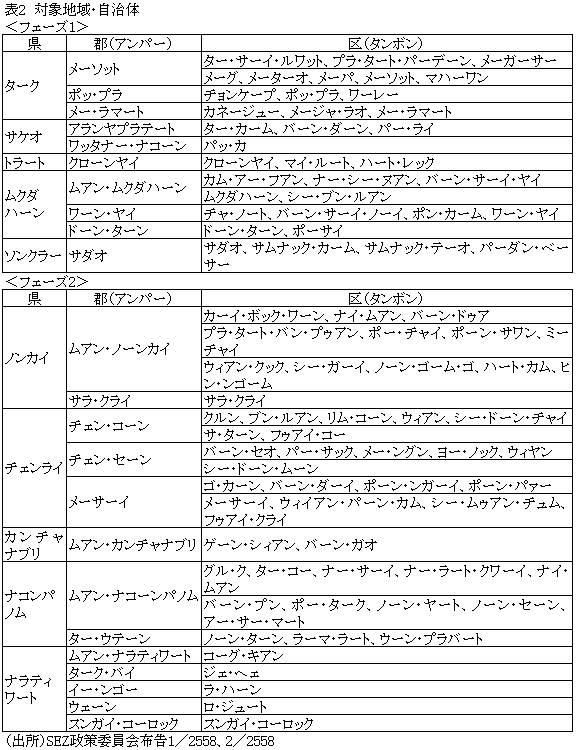 表2 対象地域・自治体
＜フェーズ1＞
県 郡（アンパー） 区（タンボン）
ターク メーソット ター・サーイ・ルワット、プラ・タート・パーデーン、メーガーサー
メーグ、メーターオ、メーパ、メーソット、マハーワン
ポッ・プラ チョンケープ、ポッ・プラ、ワーレー
メー・ラマート カネージュー、メージャ・ラオ、メー・ラマート
サケオ アランヤプラテート ター・カーム、バーン・ダーン、パー・ライ
ワッタナー・ナコーン パッ・カ
トラート クローンヤイ クローンヤイ、マイ・ルート、ハート・レック
ムクダハーン ムアン・ムクダハーン カム・アー・フアン、ナー・シー・ヌアン、バーン・サーイ・ヤイ
ムクダハーン、シー・ブン・ルアン
ワーン・ヤイ チャ・ノート、バーン・サーイ・ノーイ、ポン・カーム、ワーン・ヤイ
ドーン・ターン ドーン・ターン、ポーサイ
ソンクラー サダオ サダオ、サムナック・カーム、サムナック・テーオ、パーダン・ベー
サー
＜フェーズ2＞
県 郡（アンパー） 区（タンボン）
ノンカイ ムアン・ノーンカイ カーイ・ボック・ワーン、ナイ・ムアン、バーン・ドゥア
プラ・タート・バン・プゥアン、ポー・チャイ、ポーン・サワン、ミー・
チャイ
ウィアン・クック、シー・ガーイ、ノーン・ゴーム・ゴ、ハート・カム、ヒ
ン・ンゴーム
サラ・クライ サラ・クライ
チェンライ チェン・コーン クルン、ブン・ルアン、リム・コーン、ウィアン、シー・ドーン・チャイ
サ・ターン、フゥアイ・コー
チェン・セーン バーン・セオ、パー・サック、メー・ングン、ヨー・ノック、ウィヤン
シー・ドーン・ムーン
メーサーイ ゴ・カーン、バーン・ダーイ、ポーン・ンガーイ、ポーン・パァー
メーサーイ、ウィイアン・パーン・カム、シー・ムゥアン・チュム、
フゥアイ・クライ
カンチャナブリ ムアン・カンチャナブリ ゲーン・シィアン、バーン・ガオ
ナコンパノム ムアン・ナコーンパノム グル・ク、ター・コー、ナー・サーイ、ナー・ラート・クワーイ、ナイ・
ムアン
バーン・プン、ポー・ターク、ノーン・ヤート、ノーン・セーン、
アー・サー・マート
ター・ウテーン ノーン・ターン、ラーマ・ラート、ウーン・プラバート
ナラティワート ムアン・ナラティワート コーグ・キアン
ターク・バイ ジェ・ヘェ
イー・ンゴー ラ・ハーン
ウェーン ロ・ジュート
スンガイ・コーロック スンガイ・コーロック
（出所）SEZ政策委員会布告1／2558、2／2558